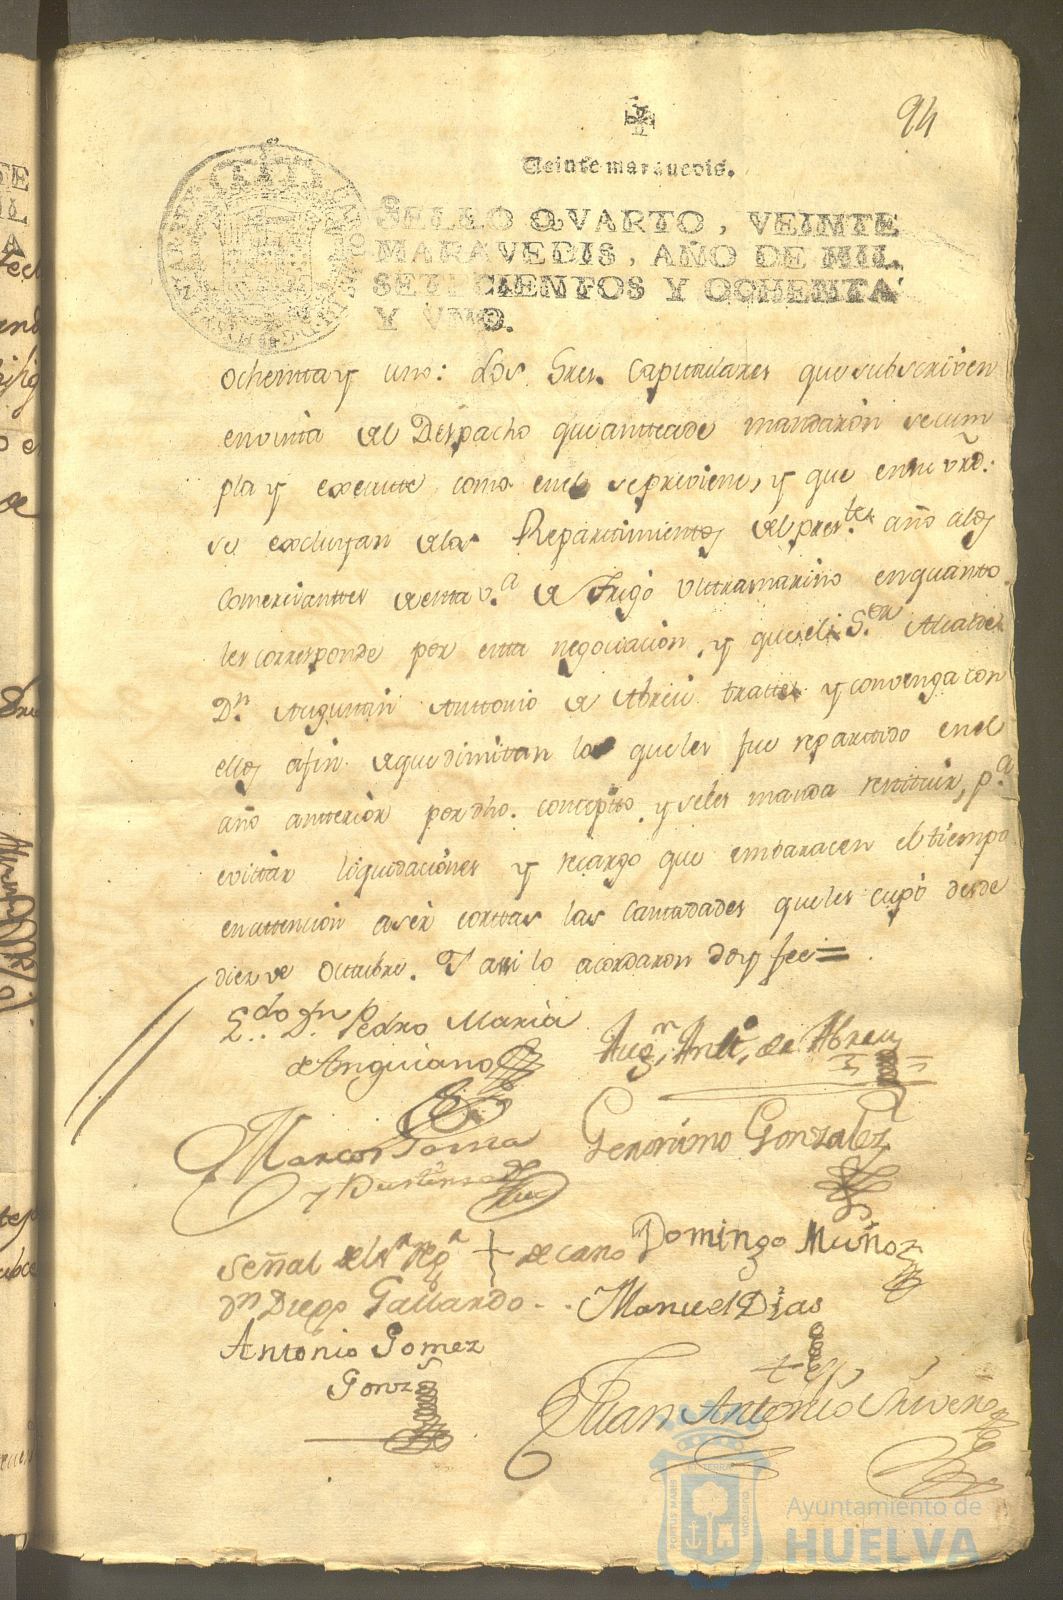 94
Veinte maravedis.
SELLO QVARTO, VEINTE
MARAVEDIS, AÑO DE MIL
SETECIENTOS Y OCHENTA
Y VNO.
ochenta y uno: Los Sres. Capitulares que subscriven
en vista del Despacho que antecede mandaron se cum
pla y execute como en el se previene, y que en su vrd.
se excluyan de los Repartimientos del pres.te año a los
Comerciantes de esta v.a de Trigo Ultramarino en quanto
les corresponde por esta negociacion, y que el S.or Alcalde
D.n Augustin Antonio de Abreu trate y convenga con
ellos a fin de que dimitan lo que les fue repartido en el
año anterior por dho. concepto y se les manda restituir, p.a
evitar liquidaciones y recargo que embaracen el tiempo
en attencion a ser cortas las cantidades que les cupo desde
diez de Octubre. Y assi lo acordaron doy fee=
L.do D.n Pedro Maria
de Anguiano
Aug.n Ant.o de Abreu
Marcos
y
Geronimo Gonzalez
Señal del + decano
Domingo Muñoz
Dn Diego Gallardo
Manuel Dias
Antonio Gomez
Gonz
Juan Antonio
PORTUS MARIS
ET TERRAE
CUSTODIA
Ayuntamiento de
HUELVA